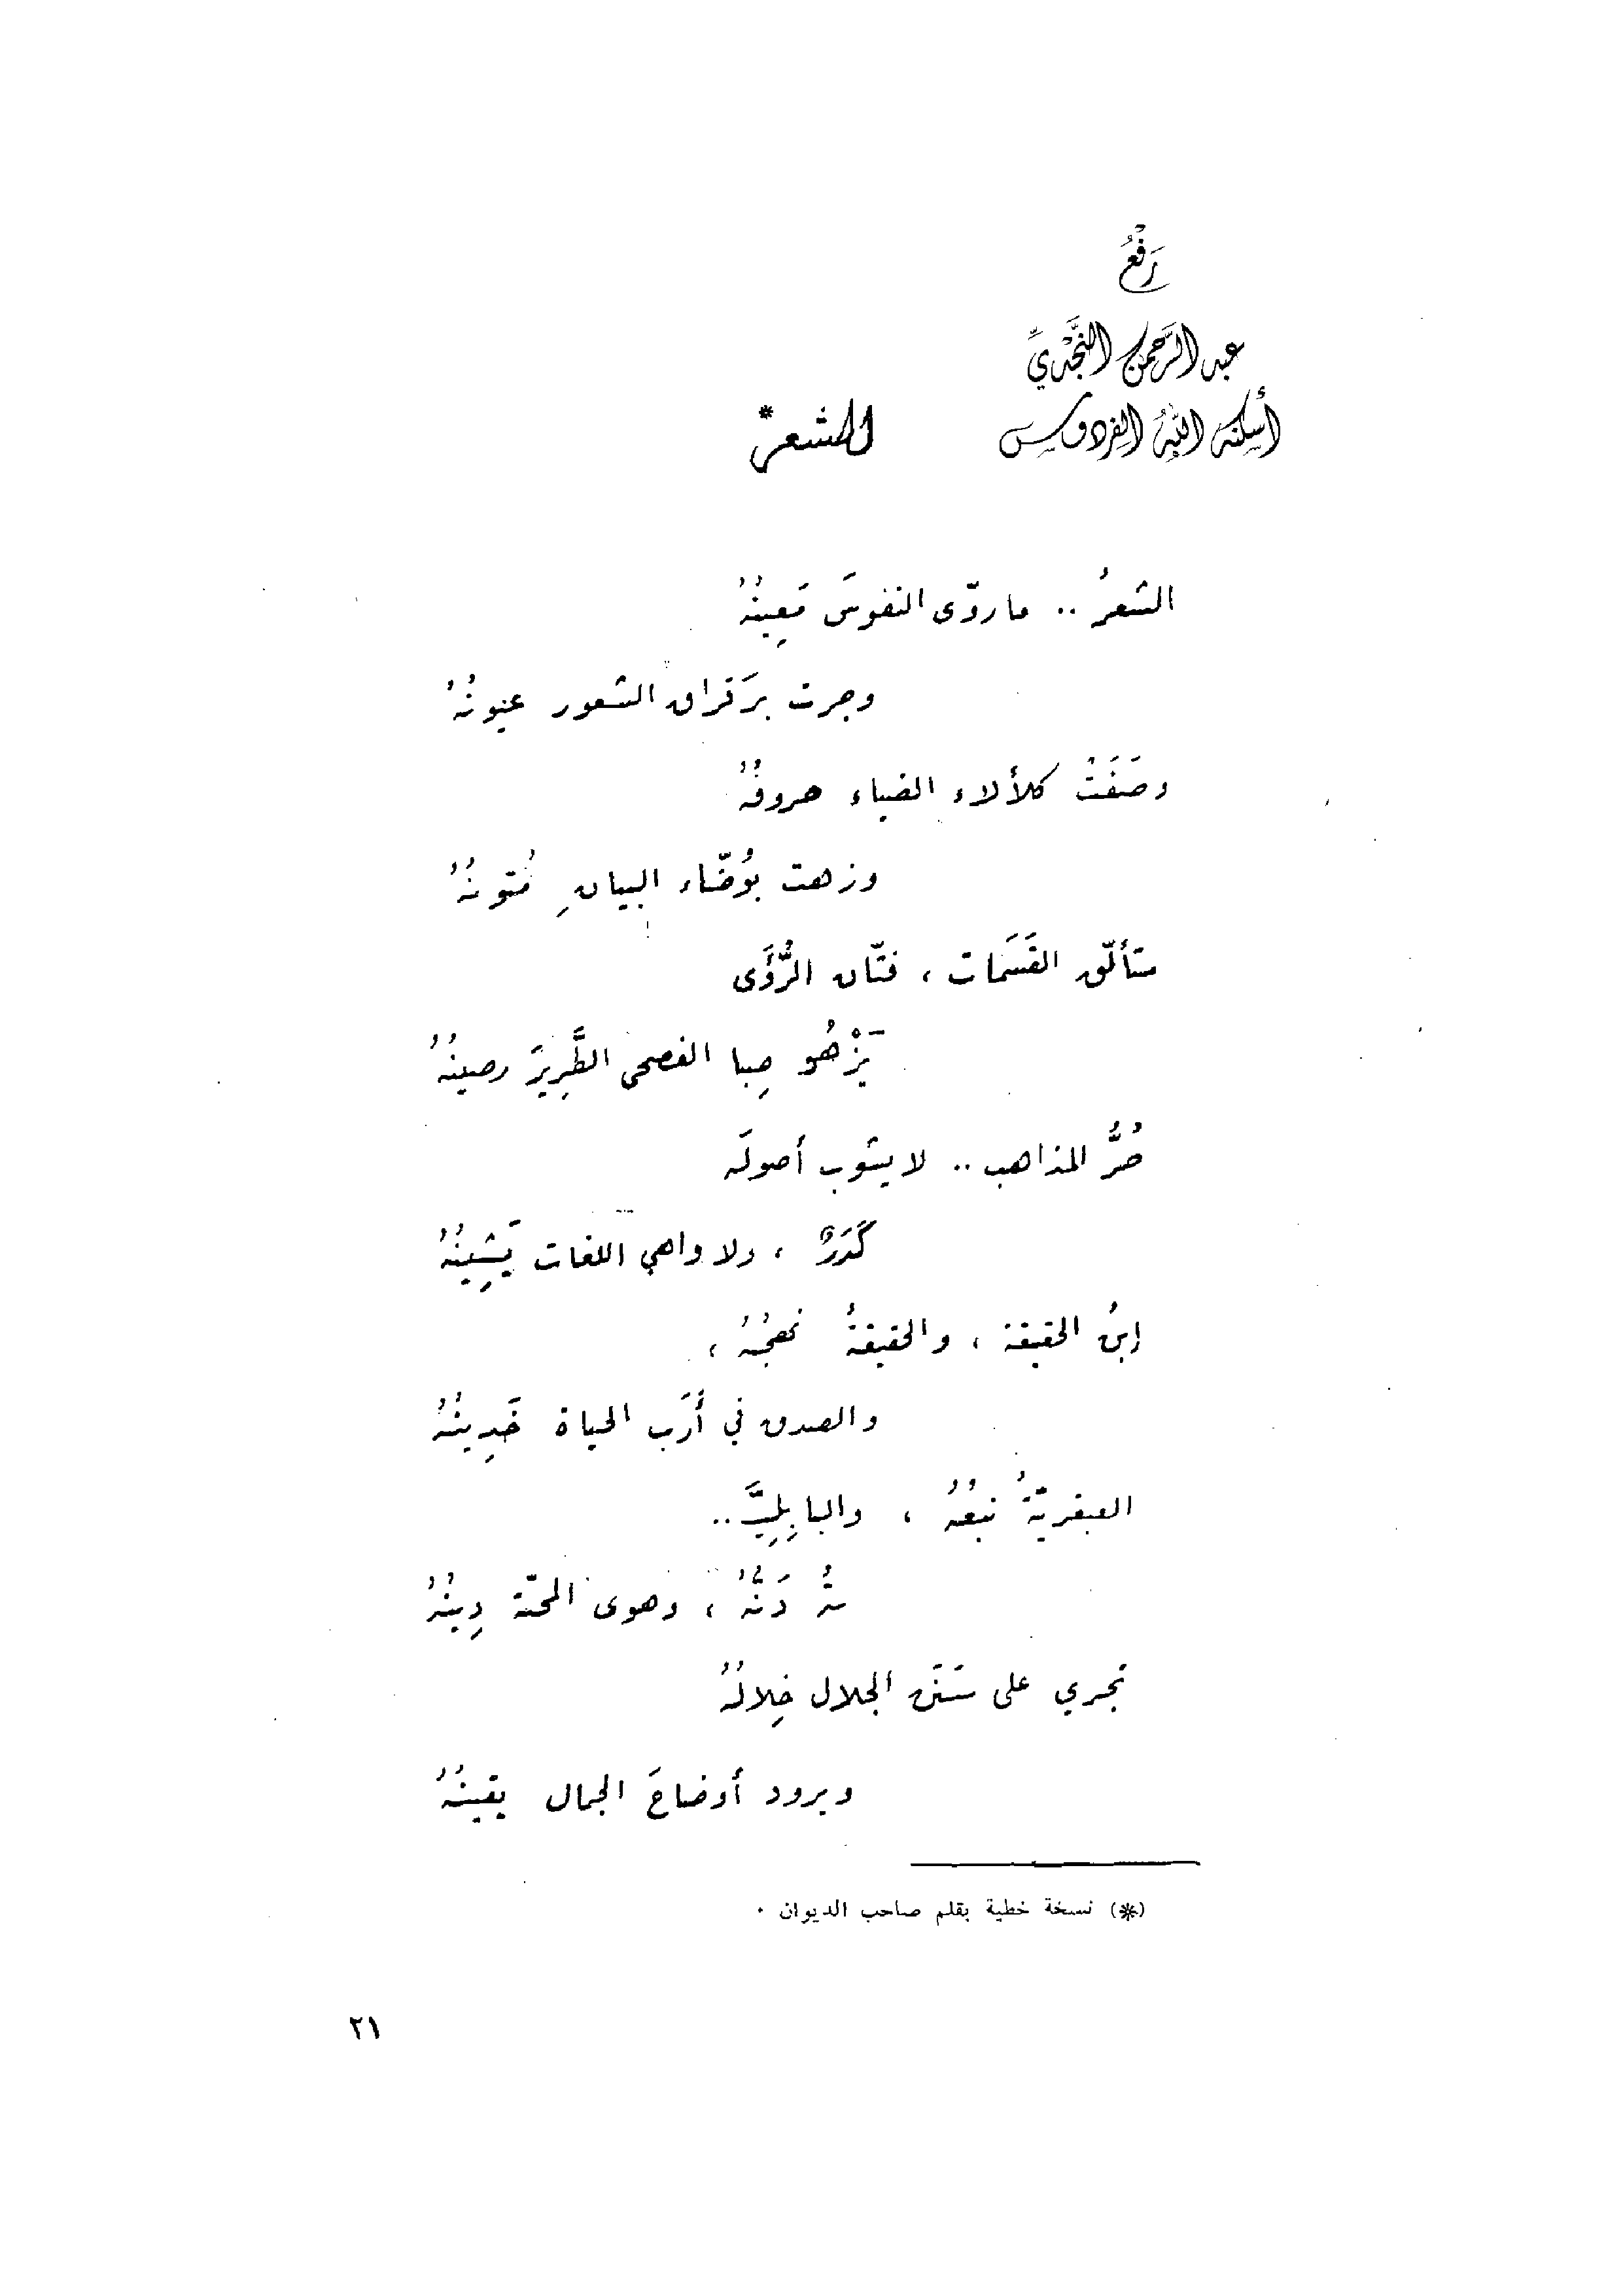 رَفْعُ
عبد الرَّحمن النَّجْديِّ
أسكنه اللهُ الفردوس
الشعر *
الشعرُ .. ما روّى النفوسَ مَعِينُهُ
وجرت برَقراق الشعور عيونُهُ
وصَفَتْ كلألاء الضياء حروفُهُ
وزهت بوُضّاء البيانِ مُتونُهُ
متألّق القَسَمات ، فتّان الرُّؤَى
يَزْهُو صِبا الفصحى الطَّرِيرَ رصينُهُ
حُرُّ المذاهب .. لا يشوب أصولَه
كَدَرٌ ، ولا واهي اللغات يَشِينُهُ
إبنُ الحقيقة ، والحقيقةُ نهجُهُ ،
والصدق في أَرَب الحياة خَدِينُهُ
العبقريّةُ نبعُهُ ، والبابِلِيَّـ..
ـةُ دَنُّهُ ، وهوى المحبّة دِينُهُ
تجري على سَنَن الجلال خِلالُهُ
ويرود أوضاحَ الجمال يقينُهُ
(*) نسخة خطية بقلم صاحب الديوان .
٢١